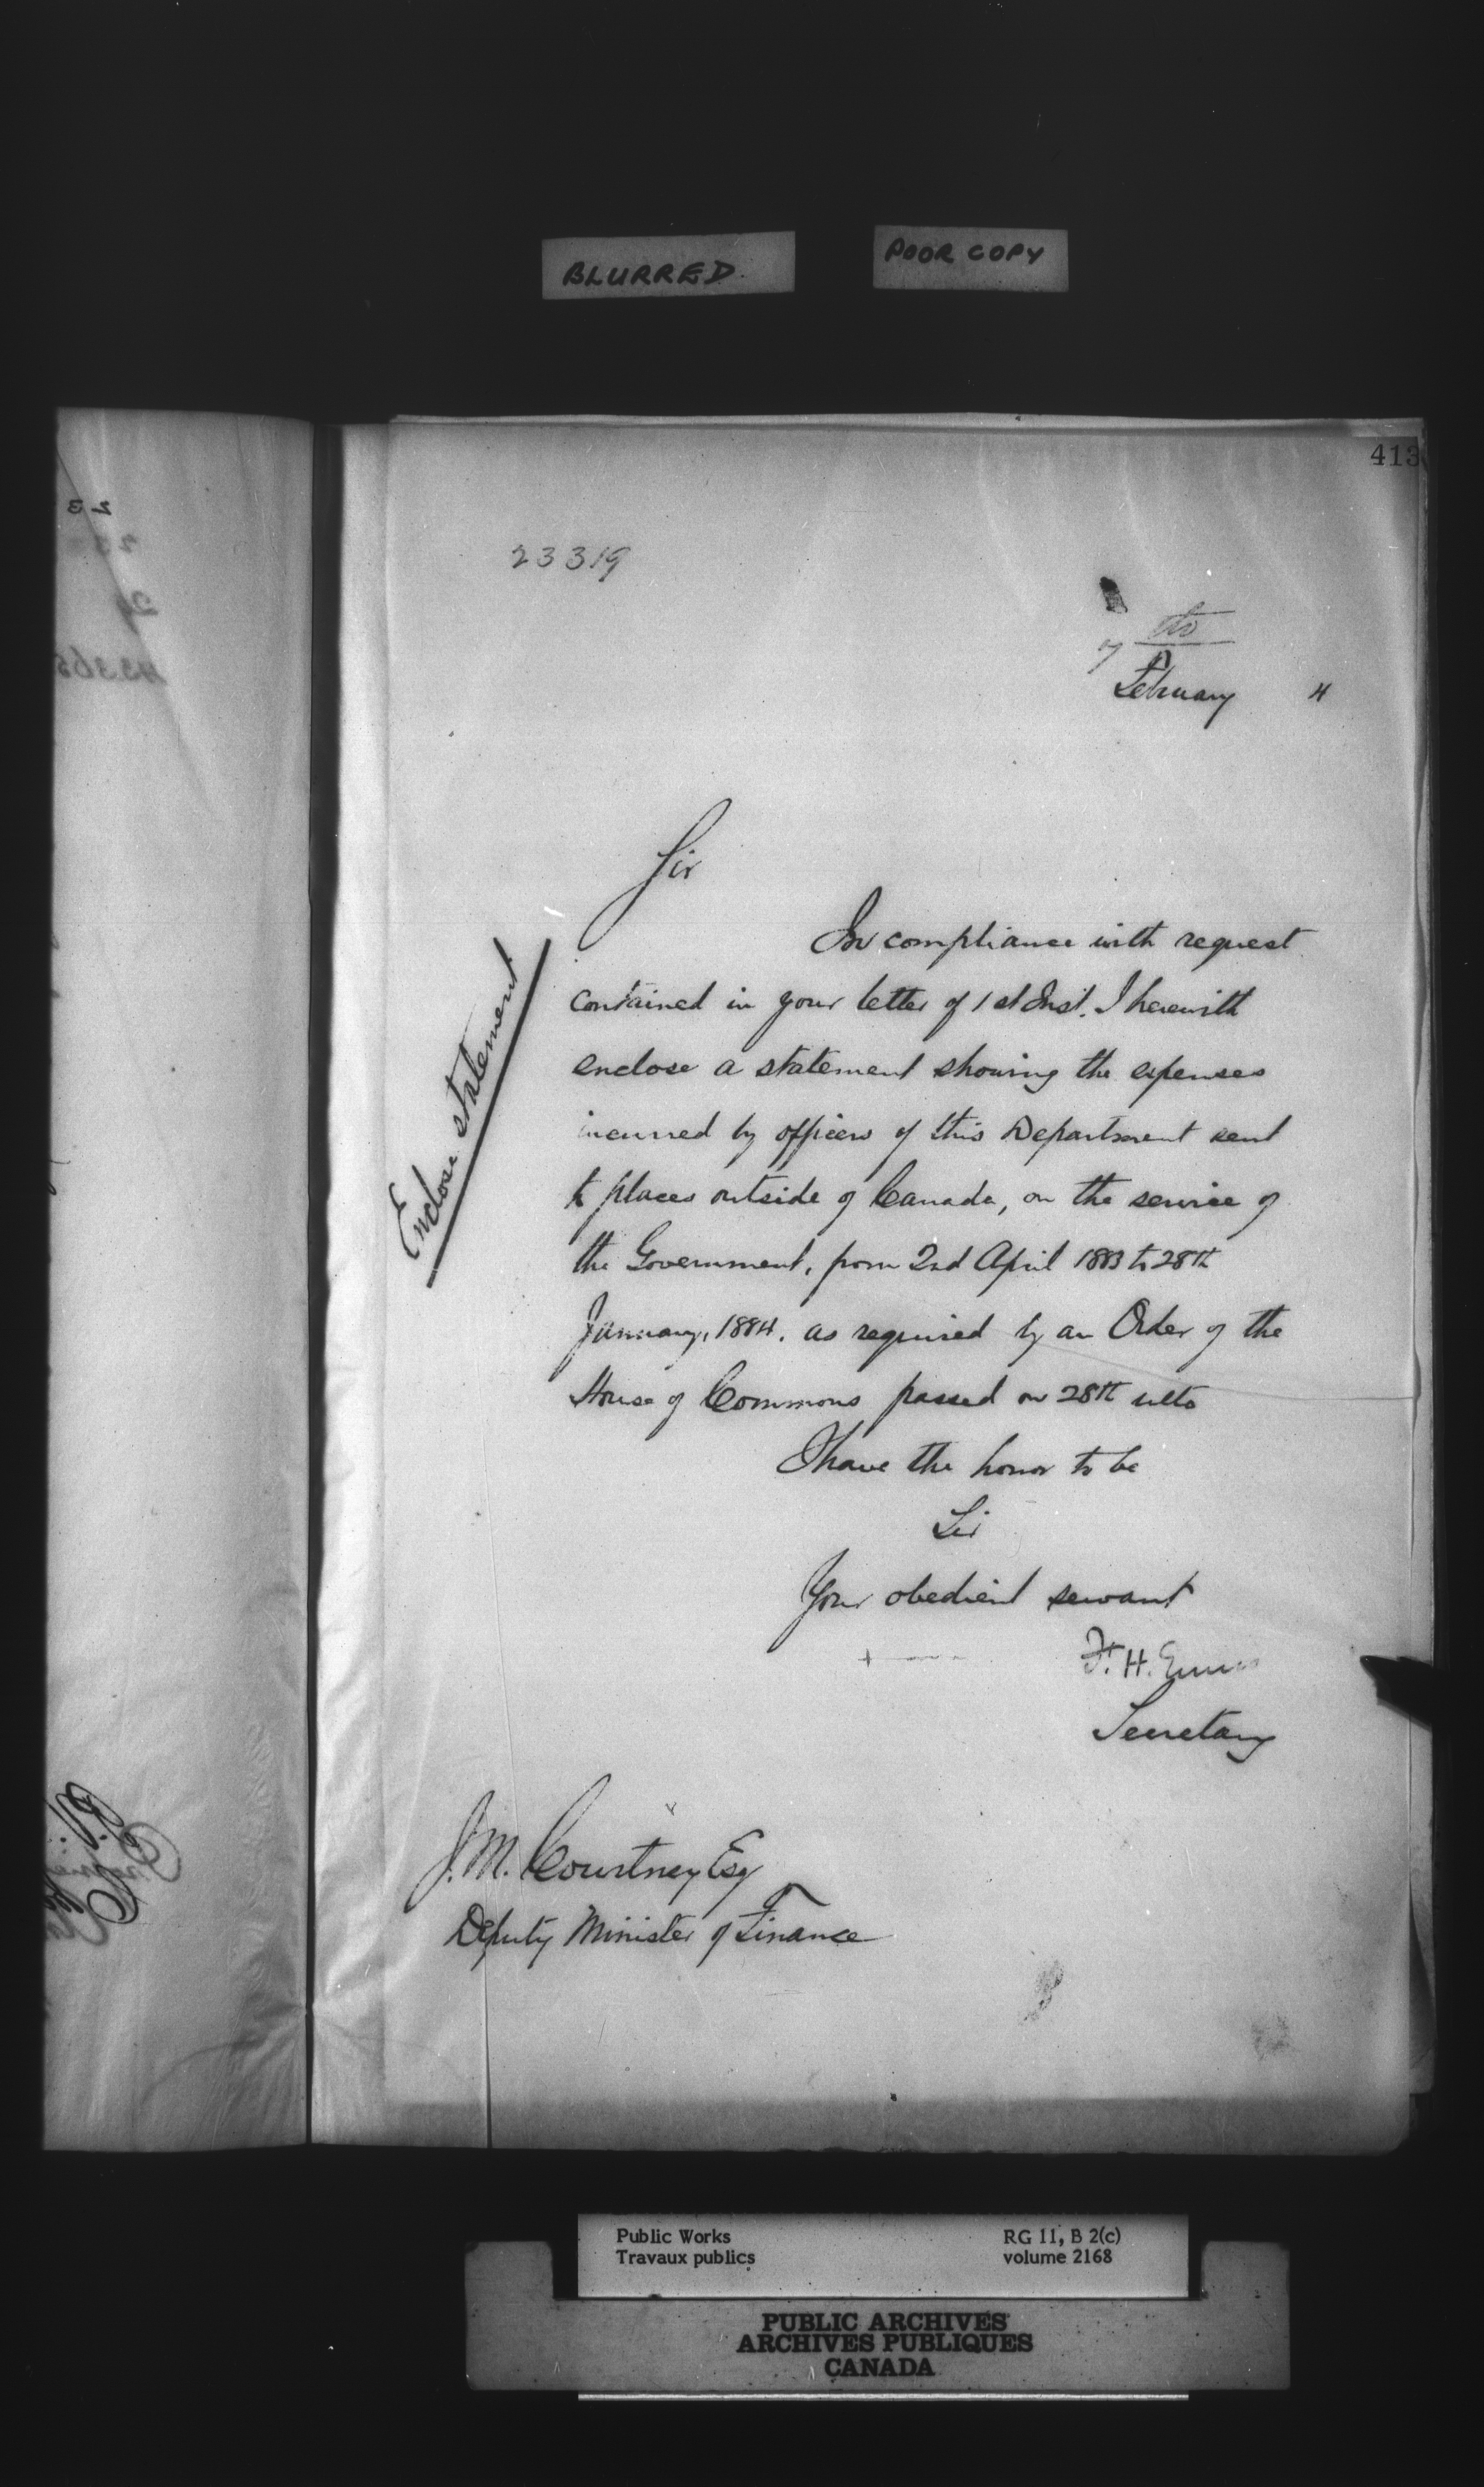 BLURRED
POOR COPY
413
23319
February 4
Sir
In compliance with request
contained in your letter of 1st Inst. I herewith
enclose a statement showing the expenses
incurred by officers of this Department sent
to places outside of Canada, on the service of
the Government, from 2nd April 1883 to 28th
January, 1884, as required by an Order of the
House of Commons passed on 28th ulto
Enclose statement
I have the honor to be
Sir
Your obedient servant
F. H. Ennis
Secretary
J. M. Courtney Esq
Deputy Minister of Finance
Public Works
Travaux publics
RG 11, B 2(c)
volume 2168
PUBLIC ARCHIVES
ARCHIVES PUBLIQUES
CANADA